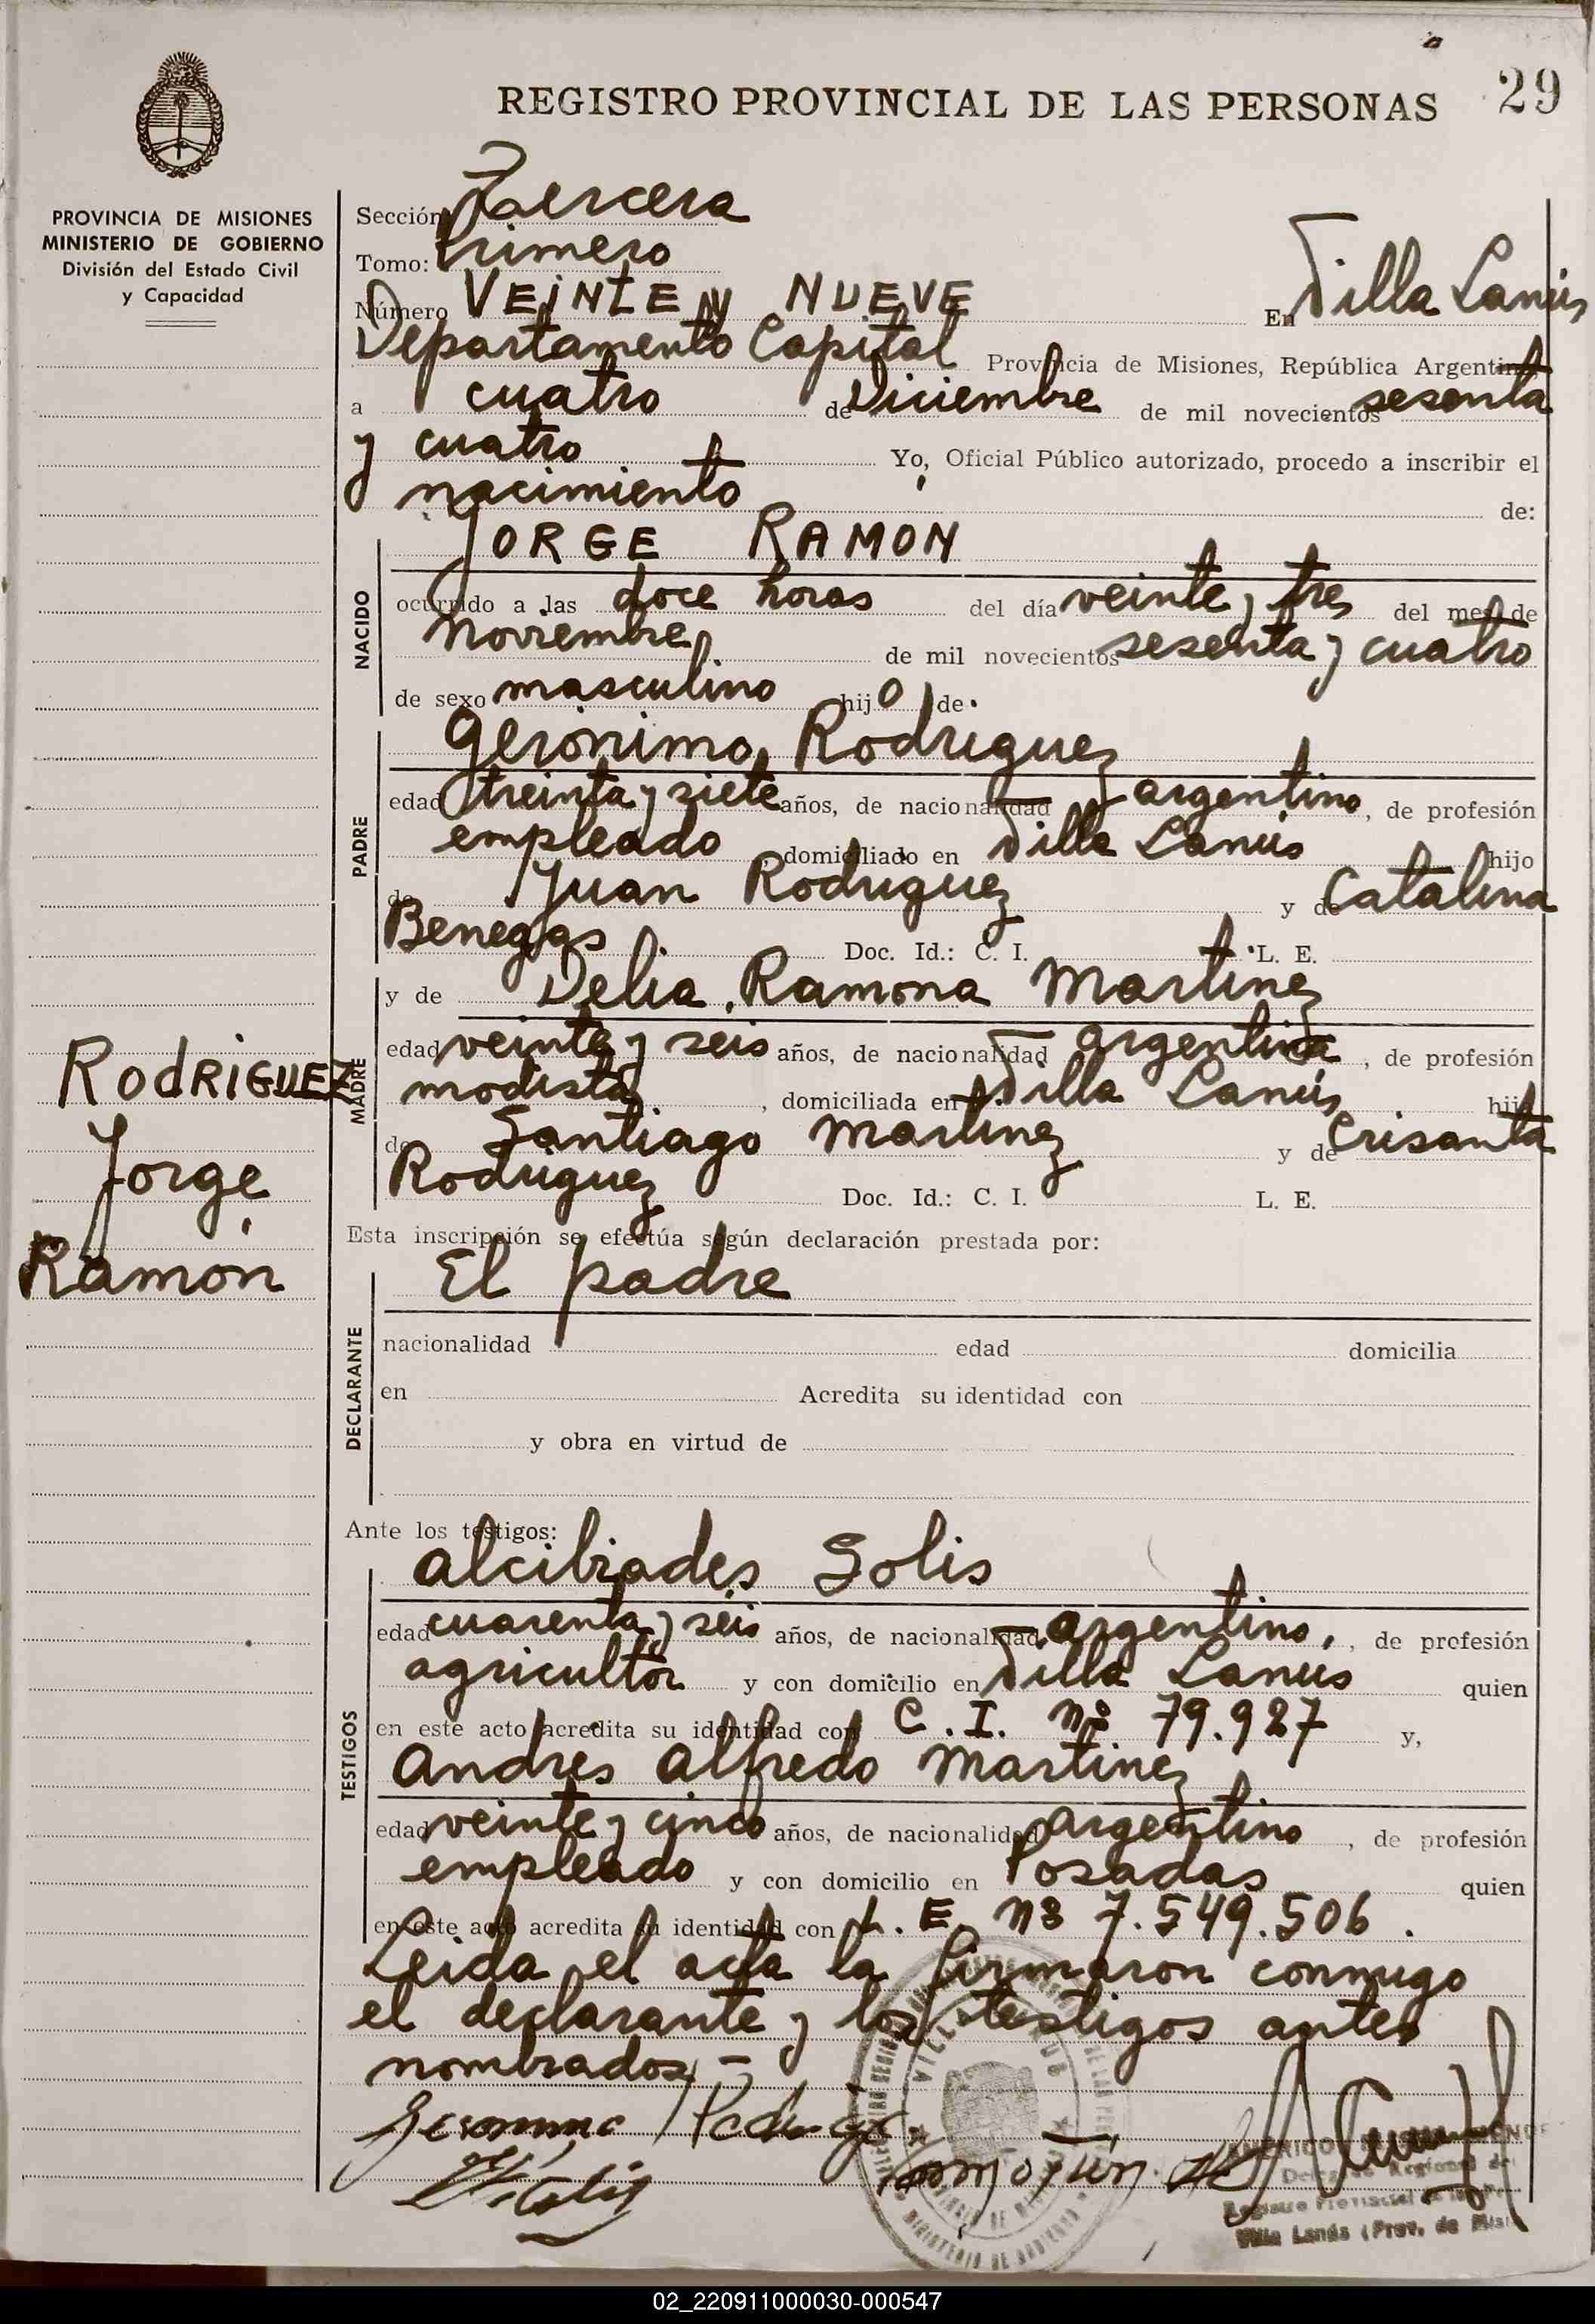 29
REGISTRO PROVINCIAL DE LAS PERSONAS
PROVINCIA DE MISIONES
MINISTERIO DE GOBIERNO
División del Estado Civil
y Capacidad
Sección Tercera
Tomo: Primero
Número VEINTE Y NUEVE En Villa Lanús
Departamento Capital Provincia de Misiones, República Argentina
a cuatro de Diciembre de mil novecientos sesenta
y cuatro Yo, Oficial Público autorizado, procedo a inscribir el
nacimiento de:
JORGE RAMON
NACIDO
ocurrido a las doce horas del día veinte y tres del mes de
Noviembre de mil novecientos sesenta y cuatro
de sexo masculino hijo de
Gerónimo Rodriguez
PADRE
edad treinta y siete años, de nacionalidad argentino, de profesión
empleado, domiciliado en Villa Lanús hijo
de Juan Rodriguez y de Catalina
Benegas Doc. Id.: C. I. L. E.
y de Delia Ramona Martinez
MADRE
edad veinte y seis años, de nacionalidad argentina, de profesión
modista, domiciliada en Villa Lanús hija
de Santiago Martinez y de Crisanta
Rodriguez Doc. Id.: C. I. L. E.
RODRIGUEZ
Jorge
Ramón
Esta inscripción se efectúa según declaración prestada por:
El padre
DECLARANTE
nacionalidad edad domicilia
en Acredita su identidad con
y obra en virtud de
Ante los testigos:
Alcibiades Solis
TESTIGOS
edad cuarenta y seis años, de nacionalidad argentino, de profesión
agricultor y con domicilio en Villa Lanus quien
en este acto acredita su identidad con C. I. nº 79.927 y,
Andres Alfredo Martinez
edad veinte y cinco años, de nacionalidad argentino, de profesión
empleado y con domicilio en Posadas quien
en este acto acredita su identidad con L. E. nº 7.549.506.
Leida el acta la firmaron conmigo
el declarante y los testigos antes
nombrados.-
Villa Lanús (Prov. de Mis
02_220911000030-000547